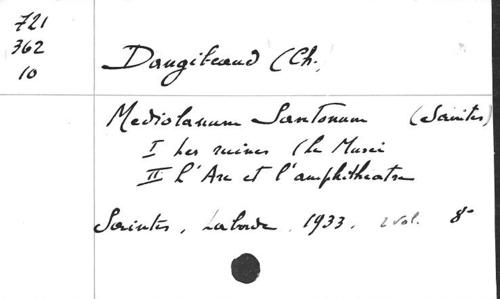 721
362
10
Dangibeaud (Ch.
Mediolanum Santonum (Saintes)
I Les ruines (le Musée
II L'Arc et l'amphithéatre
Saintes, Laborde, 1933. 2 vol. 8°